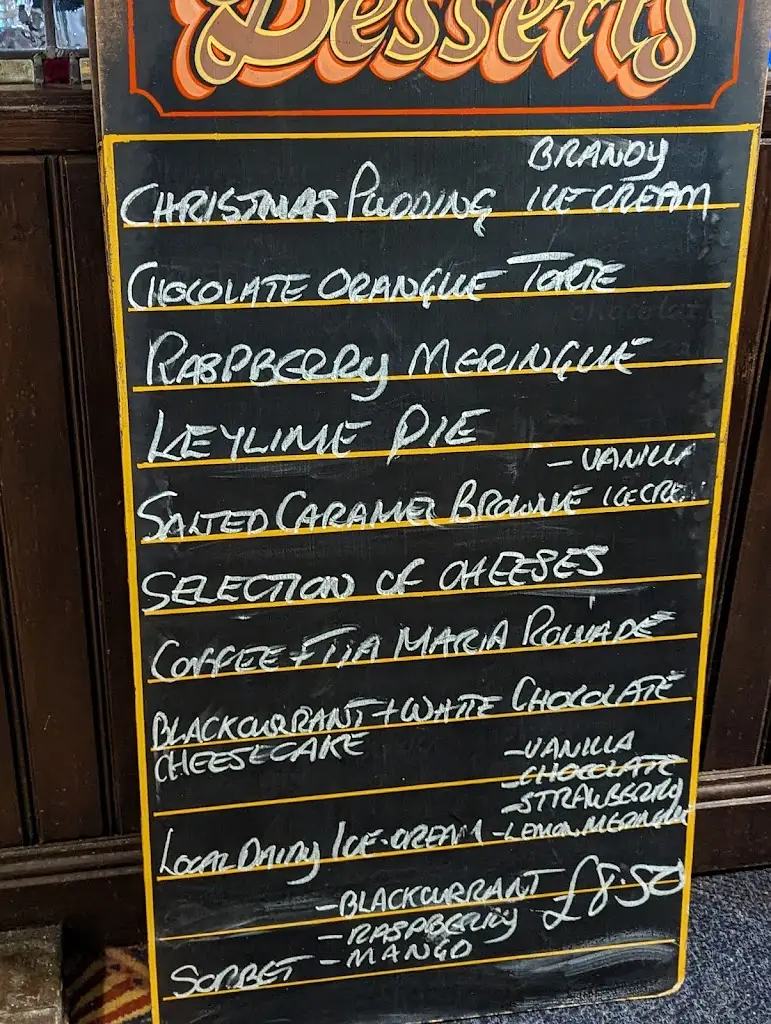 Desserts
BRANDY
CHRISTMAS PUDDING ICE CREAM
CHOCOLATE ORANGUE TORTE
RASPBERRY MERINGUE
KEYLIME PIE
- VANILLA
SALTED CARAMEL BROWNIE ICE CRE
SELECTION OF CHEESES
COFFEE + TIA MARIA ROULADE
BLACKCURRANT + WHITE CHOCOLATE
CHEESECAKE
- VANILLA
- CHOCOLATE
- STRAWBERRY
LOCAL DAIRY ICE-CREAM - LEMON MERINGUE
- BLACKCURRANT £8.50
- RASPBERRY
SORBET - MANGO